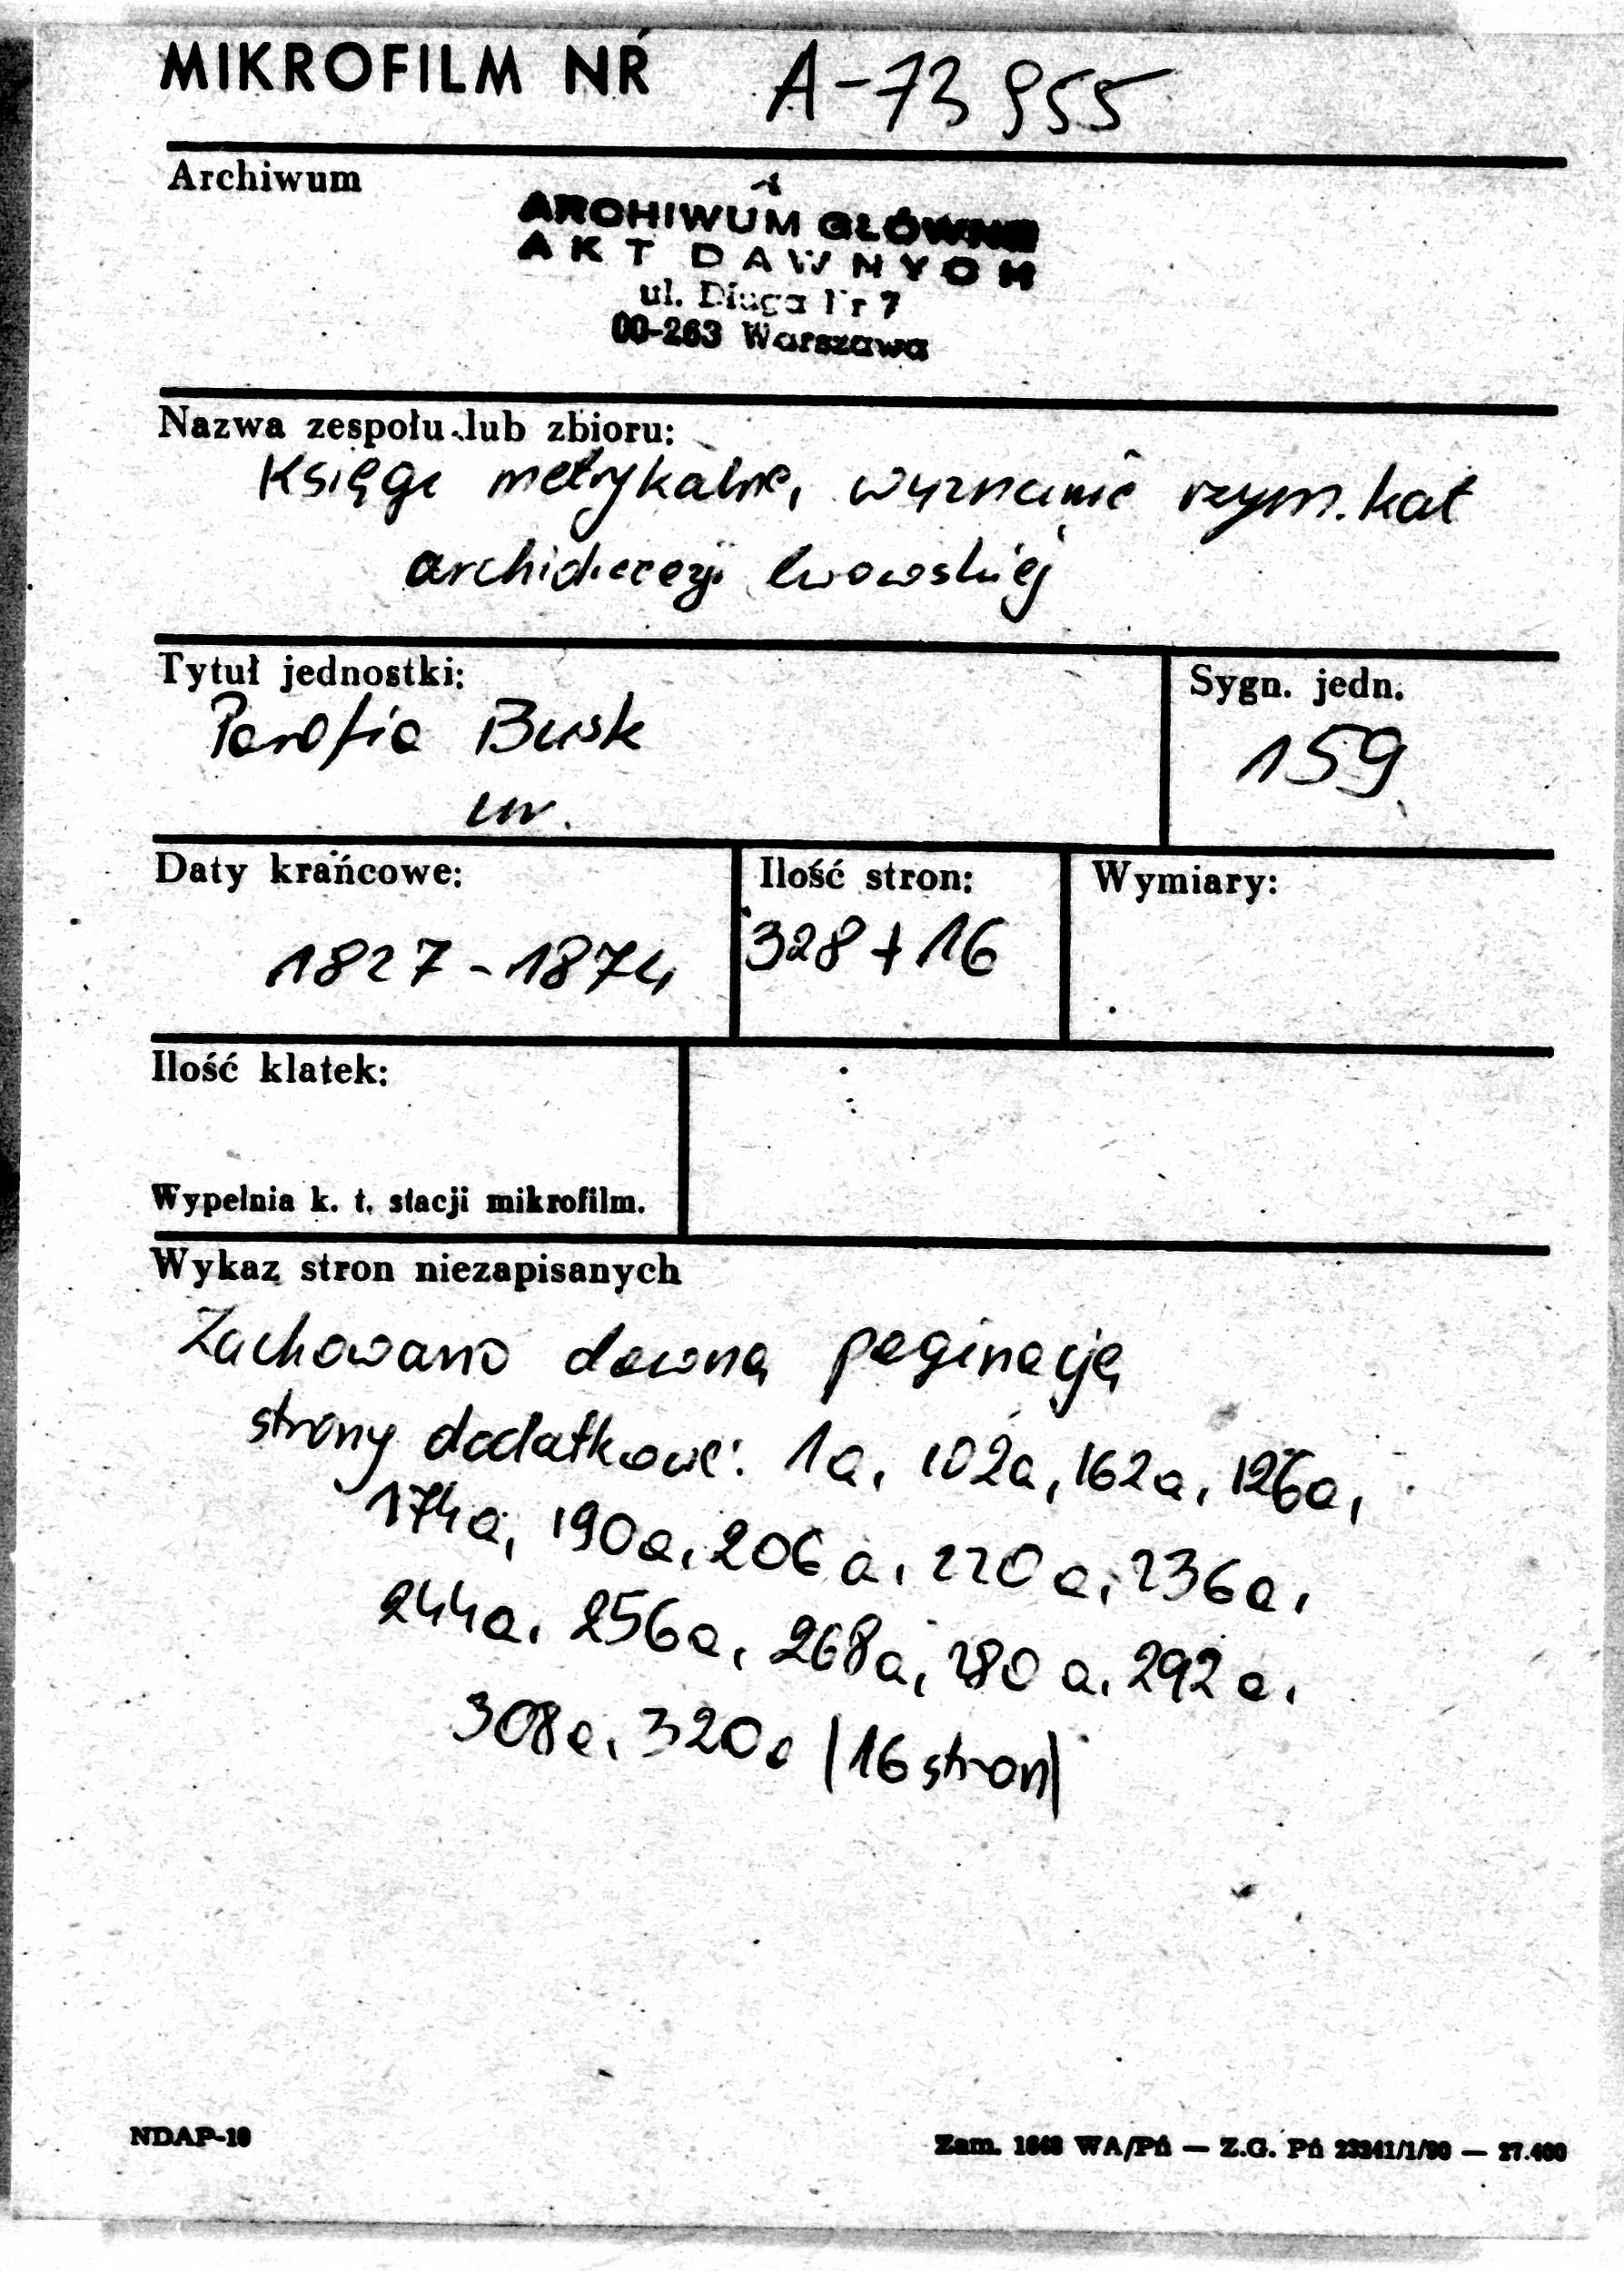 MIKROFILM NR A-73955
Archiwum
ARCHIWUM GŁÓWNE
AKT DAWNYCH
ul. Długa Nr 7
00-263 Warszawa
Nazwa zespołu lub zbioru:
Księgi metrykalne, wyznanie rzym.kat
archidiecezji lwowskiej
Tytuł jednostki:
Sygn. jedn.
Parafia Busk
159
ur.
Daty krańcowe:
Ilość stron:
Wymiary:
1827-1874
328+16
Ilość klatek:
Wypełnia k. t. stacji mikrofilm.
Wykaz stron niezapisanych
Zachowano dawną paginację
strony dodatkowe: 1a, 102a, 162a, 126a,
174a, 190a, 206a, 220a, 236a,
244a, 256a, 268a, 280a, 292a,
308a, 320a |16 stron|
NDAP-10
Zam. WA/Pń — Z.G. Pń 23241/1/90 — 27.400